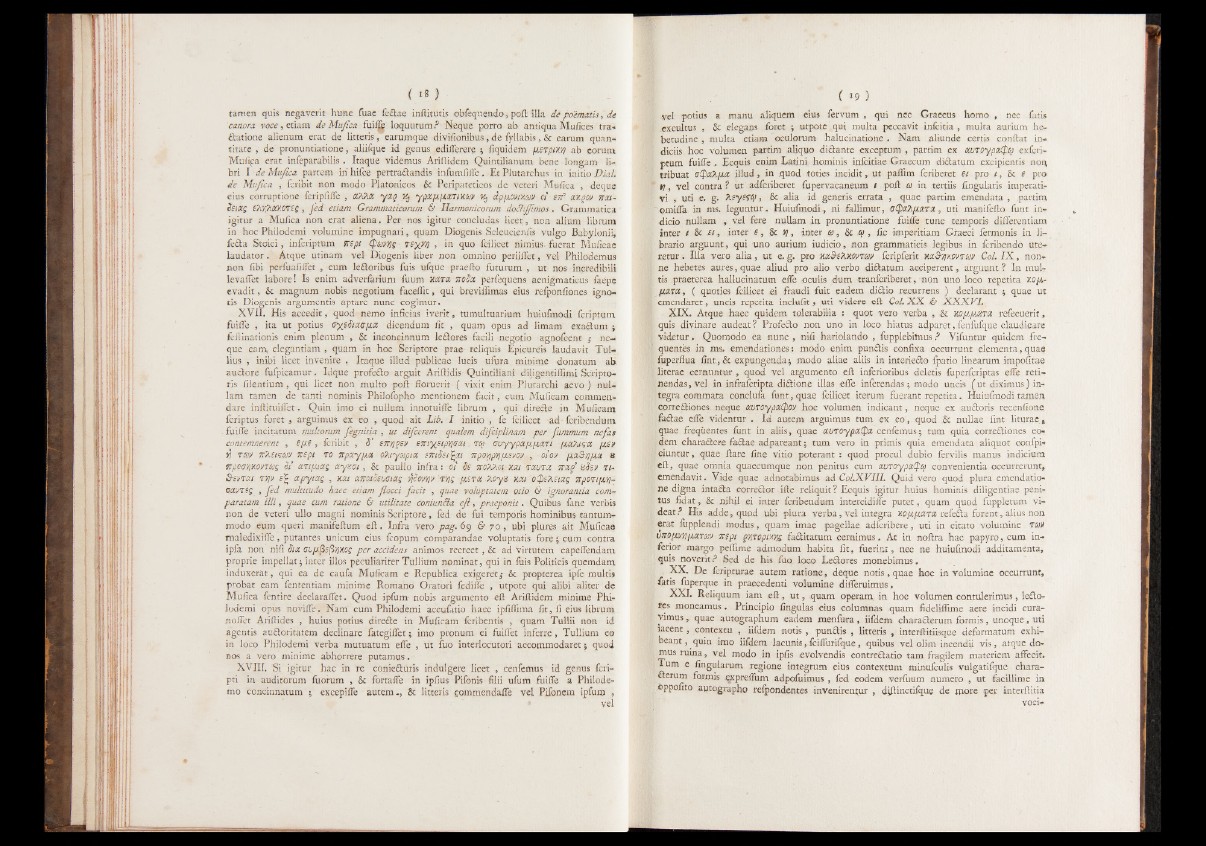 ( 18 )
tamen quis negaverit hunc suae sectae institutis obsequendo, post illa de poëmatis, de
canora voce, etiam de Musica fuisse loquutum? Neque porro ab antiqua Musices tra-
ctatione alienum erat de litteris, earumque divisionibus, de syllabis, & earum quan-
titate, de pronuntiatione, aliisque id genus edisserere; siquidem μετρικη ab eorum
Musica erat inseparabilis. Itaque videmus Aristidem Quintilianum bene longam li-
bri I de Musica partem in hisce pertractandis insumsisse. Et Plutarchus in initio Dial.
de Musica, scribit non modo Platonicos & Peripateticos de veteri Musica, deque
eius corruptione scripsisse, αλλα γαρ ϗ γραμματικων ϗ ἁρμονικων οἱ επ' ακρον παι-
δειας εληλακοτες, sed etiam Grammaticorum & Harmonicorum doctissimos. Grammatica
igitur a Musica non erat aliena. Per nos igitur concludas licet, non alium librum
in hoc Philodemi volumine impugnari, quam Diogenis Seleuciensis vulgo Babylonii,
secta Stoici, inscriptum περι φωνης τεχνη, in quo scilicet nimius fuerat Musicae
laudator. Atque utinam vel Diogenis liber non omnino periisset, vel Philodemus
non sibi persuasisset, cum lectoribus suis usque praesto futurum, ut nos incredibili
levasset labore! Is enim adversarium suum κατα ποδα persequens aenigmaticus saepe
evadit, & magnum nobis negotium facessit, qui brevissimas eius responsiones igno-
tis Diogenis argumentis aptare nunc cogimur.
XVII. His accedit, quod nemo inficias iverit, tumultuarium huiusmodi scriptum
fuisse, ita ut potius σχεδιασμα dicendum sit, quam opus ad limam exactum;
festinationis enim plenum, & inconcinnum lectores facili negotio agnoscent; ne-
que eam, elegantiam, quam in hoc Scriptore prae reliquis Epicureis laudavit Tul-
lius, inibi licet invenire. Itaque illud publicae lucis usura minime donatum ab
auctore suspicamur. Idque profecto arguit Aristidis Quintiliani diligentissimi Scripto-
ris silentium, qui licet non multo post floruerit ( vixit enim Plutarchi aevo ) nul-
lam tamen de tanti nominis Philosopho mentionem facit, cum Musicam commen-
dare instituisset. Quin imo ei nullum innotuisse librum, qui directe in Musicam
scriptus foret, arguimus ex eo, quod ait Lib. I initio, se scilicet ad scribendum
fuisse incitatum multorum segnitia, ut discerent qualem disciplinam per summum nefas
contemnerent, εμε, scribit, δ' επηρεν επιχειρησαι τῳ συγγραμματι μαλιστα μεν
ἡ των πλειστων περι το πραγμα ολιγωρια επιδειξαι προῃρημενον, οἱον μαθημα ȣ
προσηκοντως δι' ατιμιας αγκοι, & paullo infra: οἱ δε πολλοι και ταυτα παρ' ȣδεν τι-
θενται την εξ αργιας, και απαιδευσιας ηδονην της μετα λογȣ και ωφελειας προτιμη-
σαντες, sed multitudo haec etiam flocci facit, quae voluptatem otio & ignorantia com-
paratam illi, quae cum ratione & utilitate coniuncta est, praeponit. Quibus sane verbis
non de veteri ullo magni nominis Scriptore, sed de sui temporis hominibus tantum-
modo eum queri manifestum est. Infra vero pag. 69 & 70, ubi plures ait Musicae
maledixisse, putantes unicum eius scopum comparandae voluptatis fore; cum contra
ipsa non nisi δια συμβεβηκος per accidens animos recreet, & ad virtutem capessendam
proprie impellat; inter illos peculiariter Tullium nominat, qui in suis Politicis quemdam
induxerat, qui ea de causa Musicam e Republica exigeret; & propterea ipse multis
probat eam sententiam minime Romano Oratori sedisse, utpote qui alibi aliter de
Musica sentire declarasset. Quod ipsum nobis argumento est Aristidem minime Phi-
lodemi opus novisse. Nam cum Philodemi accusatio haec ipsissima sit, si eius librum
nosset Aristides, huius potius directe in Musicam scribentis, quam Tullii non id
agentis auctoritatem declinare sategisset; imo pronum ei fuisset inferre, Tullium eo
in loco Philodemi verba mutuatum esse, ut suo interlocutori accommodaret; quod
nos a vero minime abhorrere putamus.
XVIII. Si igitur hac in re coniecturis indulgere licet, censemus id genus scri-
pti in auditorum suorum, & fortasse in ipsius Pisonis filii usum fuisse a Philode-
mo concinnatum; excepisse autem, & litteris commendasse vel Pisonem ipsum,
vel
( 19 )
vel potius a manu aliquem eius servum, qui nec Graecus homo, nec satis
excultus, & elegans foret; utpote qui multa peccavit inscitia, multa aurium he-
betudine, multa etiam oculorum halucinatione. Nam aliunde certis constat in-
diciis hoc volumen partim aliquo dictante exceptum, partim ex αυτογραφῳ exscri-
ptum fuisse. Ecquis enim Latini hominis inscitiae Graecum dictatum excipientis non
tribuat σφαλμα illud, in quod toties incidit, ut passim scriberet ει pro ι, & ε pro
η, vel contra? ut adscriberet supervacaneum ι post ω in tertiis singularis imperati-
vi, uti e. g. λεγετωι, & alia id generis errata, quae partim emendata, partim
omissa in ms. leguntur. Huiusmodi, ni fallimur, σφαλματα, uti manifesto sunt in-
dicio nullam, vel fere nullam in pronuntiatione fuisse tunc temporis differentiam
inter ι & ει, inter ε, & η, inter ω, & ῳ, sic imperitiam Graeci sermonis in li-
brario arguunt, qui uno aurium iudicio, non grammaticis legibus in scribendo ute-
retur. Illa vero alia, ut e. g. pro καθελκοντων scripserit καθηκοντων Col. IX, non-
ne hebetes aures, quae aliud pro alio verbo dictatum acciperent, arguunt? In mul-
tis praeterea hallucinatum esse oculis dum transcriberet, non uno loco repetita κομ-
ματα, ( quoties scilicet ei fraudi fuit eadem dictio recurrens ) declarant; quae ut
emendaret, uncis repetita inclusit, uti videre est Col. XX & XXXVI.
XIX. Atque haec quidem tolerabilia: quot vero verba, & κομματα resecuerit,
quis divinare audeat? Profecto non uno in loco hiatus adparet, sensusque claudicare
videtur. Quomodo ea nunc, nisi hariolando, supplebimus? Visuntur quidem fre-
quentes in ms. emendationes: modo enim punctis confixa occurrunt elementa, quae
superflua sint, & expungenda; modo aliae aliis in interiecto spatio linearum impositae
literae cernuntur, quod vel argumento est inferioribus deletis superscriptas esse reti-
nendas, vel in infrascripta dictione illas esse inferendas; modo uncis ( ut diximus ) in-
tegra commata conclusa sunt, quae scilicet iterum fuerant repetita. Huiusmodi tamen
correctiones neque αυτογραφον hoc volumen indicant, neque ex auctoris recensione
factae esse videntur. Id autem arguimus tum ex eo, quod & nullae sint liturae,
quae frequentes sunt in aliis, quae αυτογραφα censemus; tum quia correctiones eo-
dem charactere factae adpareant; tum vero in primis quia emendata aliquot conspi-
ciuntur, quae stare sine vitio poterant: quod procul dubio servilis manus indicium
est, quae omnia quaecumque non penitus cum αυτογραφῳ convenientia occurrerunt,
emendavit. Vide quae adnotabimus ad Col. XVIII. Quid vero quod plura emendatio-
ne digna intacta corrector iste reliquit? Ecquis igitur huius hominis diligentiae peni-
tus fidat, & nihil ei inter scribendum intercidisse putet, quam quod suppletum vi-
deat? His adde, quod ubi plura verba, vel integra κομματα resecta forent, alius non
erat supplendi modus, quam imae pagellae adscribere, uti in citato volumine των
ὑπομνηματων περι ρητορικης factitatum cernimus. At in nostra hac papyro, cum in-
ferior margo pessime admodum habita sit, fuerint, nec ne huiusmodi additamenta,
quis noverit? Sed de his suo loco Lectores monebimus.
XX. De scripturae autem ratione, deque notis, quae hoc in volumine occurrunt,
satis superque in praecedenti volumine disseruimus.
XXI. Reliquum iam est, ut, quam operam in hoc volumen contulerimus, lecto-
res moneamus. Principio singulas eius columnas quam fidelissime aere incidi cura-
vimus, quae autographum eadem mensura, iisdem characterum formis, unoque, uti
iacent, contextu, iisdem notis, punctis, litteris, interstitiisque deformatum exhi-
beant, quin imo iisdem lacunis, scissurisque, quibus vel olim incendii vis, atque do-
mus ruina, vel modo in ipsis evolvendis contrectatio tam fragilem materiem affecit.
Tum e singularum regione integrum eius contextum minusculis vulgatisque chara-
cterum formis expressum adposuimus, sed eodem versuum numero, ut facillime in
opposito autographo respondentes invenirentur, distinctisque de more per interstitia
voci-